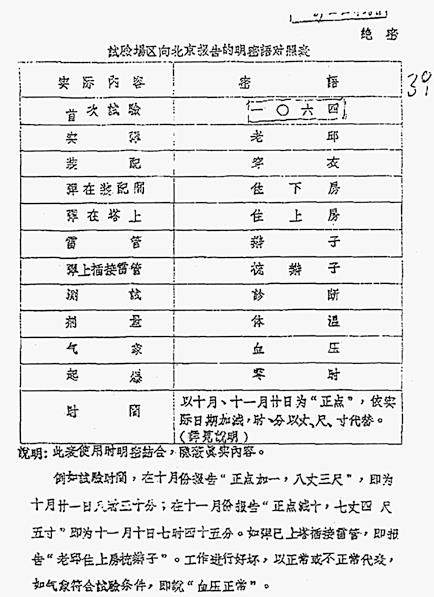 绝密
試验場区向北京报告的明密語对照表
39
实际內容 密語
首次試驗 一〇六四
实弹 老邱
装配 穿衣
弹在装配間 住下房
弹在塔上 住上房
雷管 辮子
弹上插接雷管 梳辮子
測試 診断
量 体温
气象 血压
起爆 零时
时間 以十月、十一月廿日为“正点”,依实
际日期加減,时、分以丈、尺、寸代替。
(詳見說明)
說明:此表使用时明密結合,隐蔽真实內容。
例如試验时間,在十月份报告“正点加一,八丈三尺”,即为
十月廿一日八若三十分;在十一月份报告“正点減十,七丈四尺
五寸”即为十一月十日七时四十五分。如弹已上塔插接雷管,即报
告“老邱住上房梳辮子”。工作进行好坏,以正常或不正常代表,
如气象符合試验条件,即說“血压正常”。